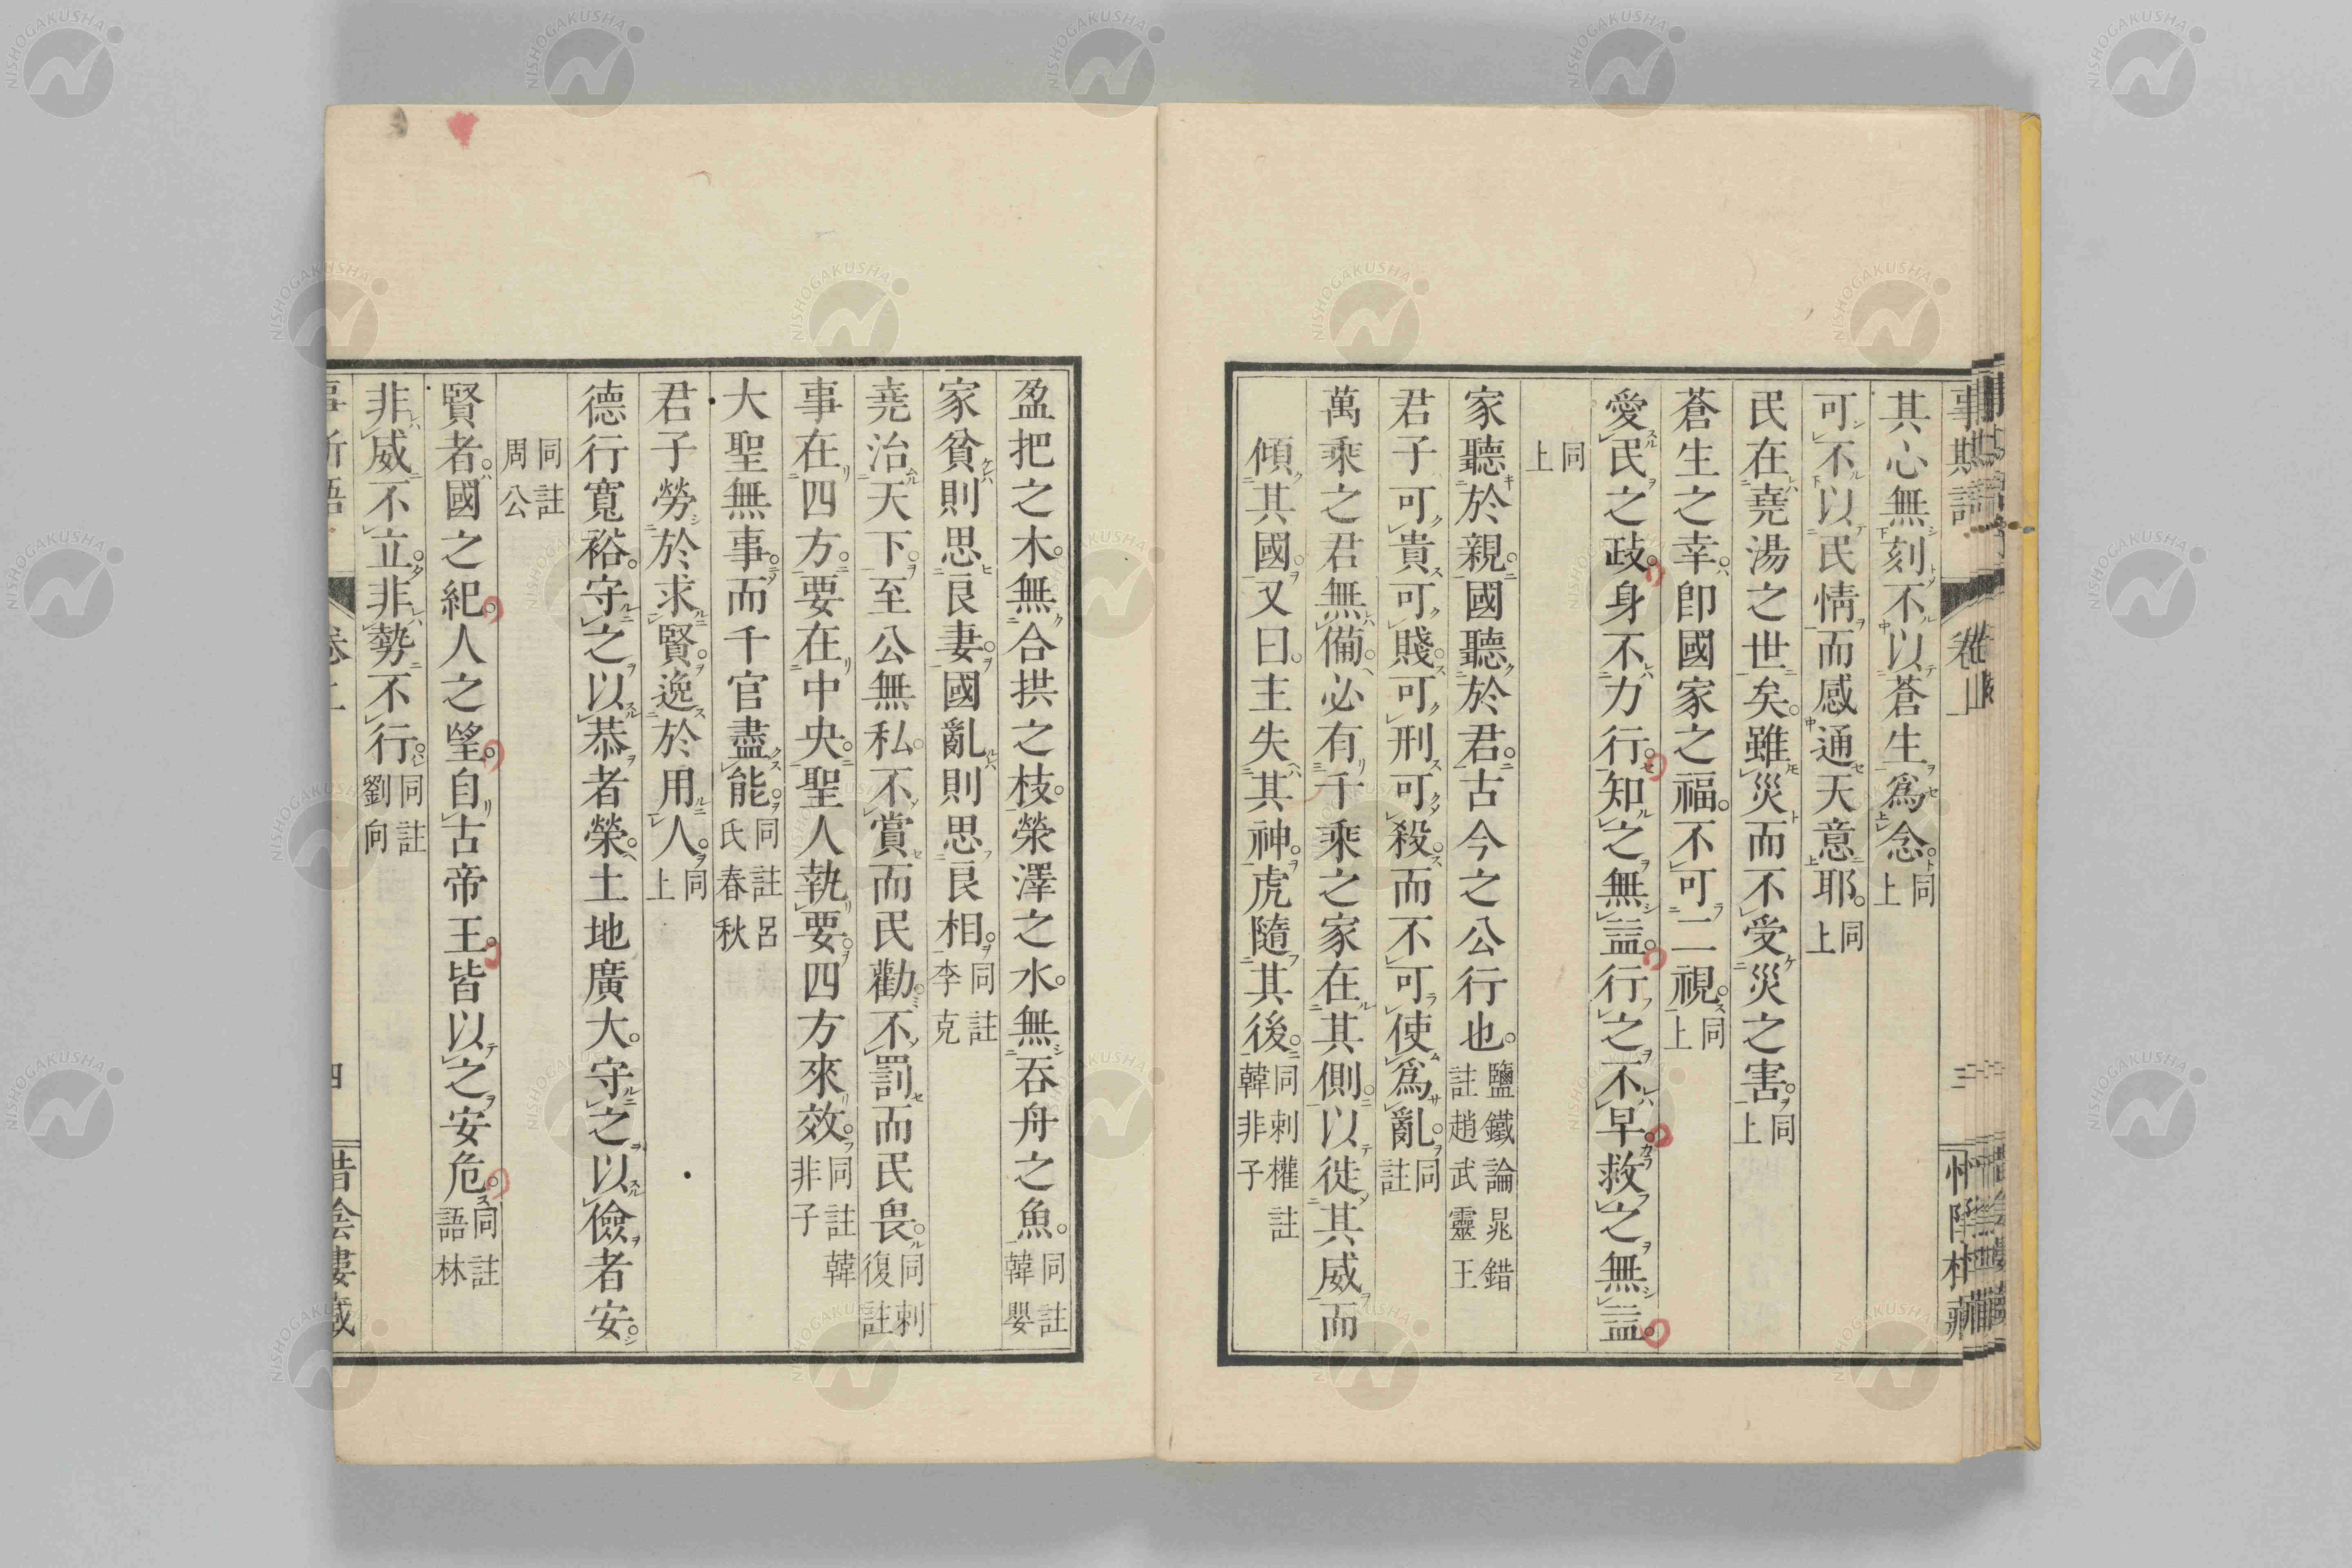 其心無刻不以蒼生爲念。同上
可不以民情而感通天意耶。同上
民在堯湯之世矣。雖災而不受災之害。同上
蒼生之幸。卽國家之福。不可二視。同上
愛民之政。身不力行。知之無益。行之不早。救之無益。
同上
家聽於親。國聽於君。古今之公行也。鹽鐵論晁錯註趙武靈王
君子可貴可賤。可刑可殺。而不可使爲亂。同註
萬乘之君無備。必有千乘之家在其側。以徙其威而
傾其國。又曰。主失其神。虎隨其後。同刺權註韓非子
盈把之木。無合拱之枝。榮澤之水。無吞舟之魚。同註韓嬰
家貧則思良妻。國亂則思良相。同註李克
堯治天下。至公無私。不賞而民勸。不罰而民畏。同刺復註
事在四方。要在中央。聖人執要。四方來效。同註韓非子
大聖無事。而千官盡能。同註呂氏春秋
君子勞於求賢。逸於用人。同上
德行寬裕。守之以恭者榮。土地廣大。守之以儉者安。
同註周公
賢者。國之紀。人之望。自古帝王。皆以之安危。同註語林
非威不立。非勢不行。同註劉向
惜陰書藏
NISHOGAKUSHA